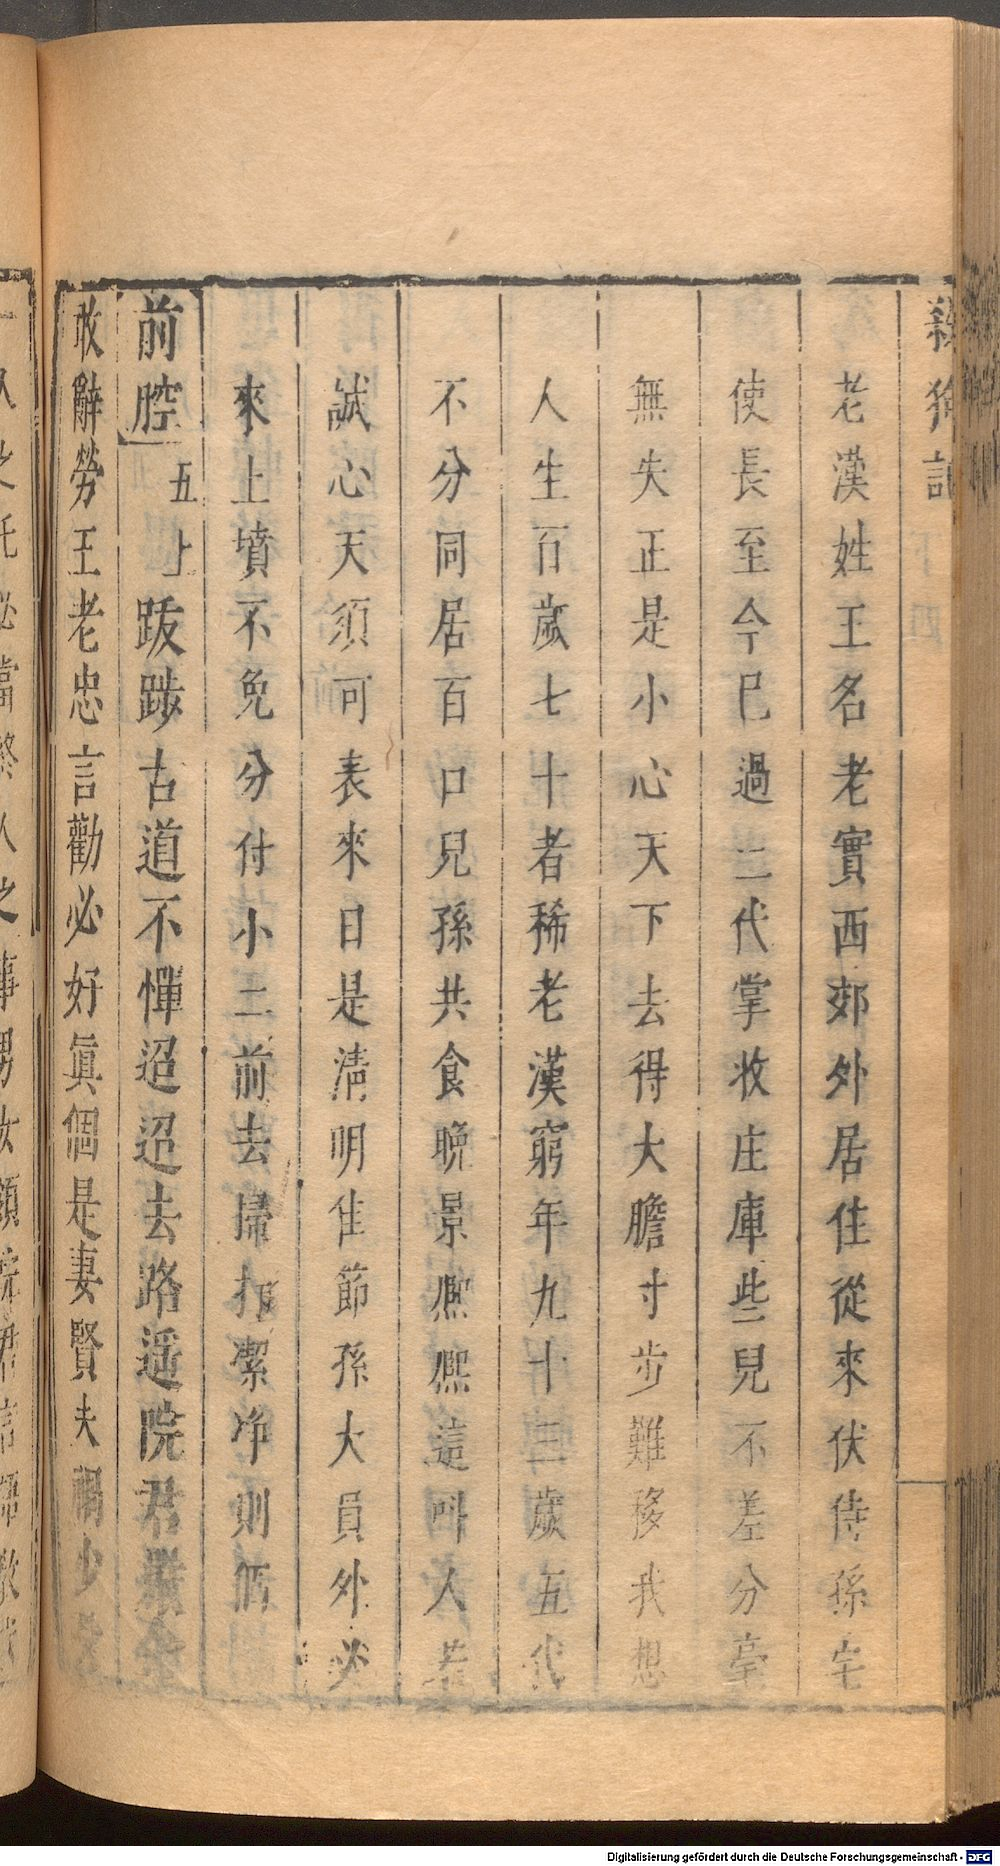 殺狗記
老漢姓王名老實西郊外居住從來伏侍孫宅
使長至今巳過二代掌收庄庫些兒不差分毫
無失正是小心天下去得大膽寸步難移我想
人生百歲七十者稀老漢窮年九十三歲五代
不分同居百口兒孫共食晚景熈熈這呌人若
誠心天須可表來日是清明隹節孫大員外必
來上墳不免分付小二前去掃打潔净則個
前腔五上跋踄古道不憚迢迢去路遥院君嚴命
敢辭勞王老忠言勸必好眞個是妻賢夫禍少
Digitalisierung gefördert durch die Deutsche Forschungsgemeinschaft - DFG